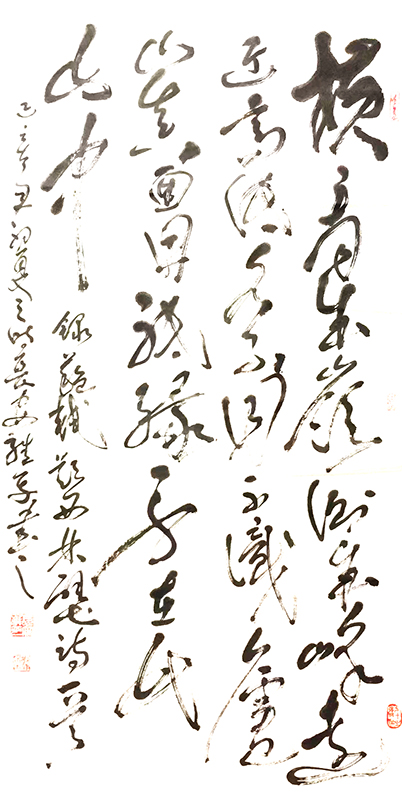 橫看成嶺側成峰遠
近高低各不同不識廬
山真面目祇緣身在此
山中
錄蘇軾題西林壁詩一首
之時長安 書之